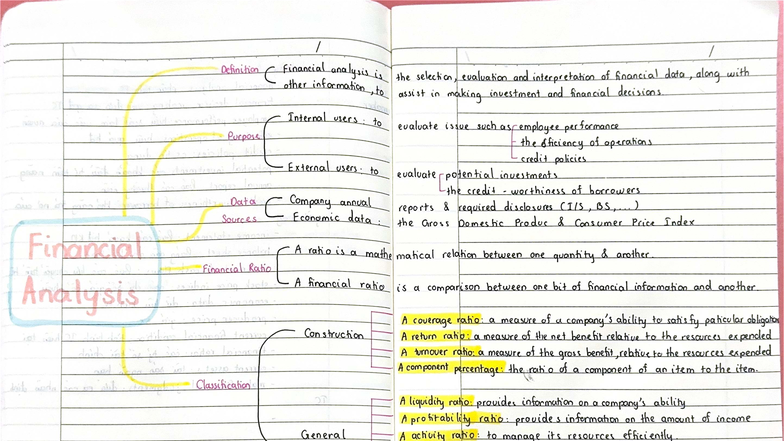 Definition
Financial analysis is the selection, evaluation and interpretation of financial data, along with
other information, to assist in making investment and financial decisions.
Purpose
Internal users: to evaluate issue such as employee performance
the efficiency of operations
credit policies
External users: to evaluate potential investments
the credit-worthiness of borrowers
Data
Sources
Company annual reports & required disclosures (I/S, BS,...)
Economic data: the Gross Domestic Produc & Consumer Price Index
Financial
Analysis
Financial Ratio
A ratio is a mathematical relation between one quantity & another.
A financial ratio is a comparison between one bit of financial information and another.
Classification
Construction
A coverage ratio: a measure of a company's ability to satisfy paticular obligation
A return ratio: a measure of the net benefit relative to the resources expended
A turnover ratio: a measure of the gross benefit, relative to the resources expended
A component percentage: the ratio of a component of an item to the item.
General
A liquidity ratio: provides information on a company's ability
A profitability ratio: provides information on the amount of income
A activity ratio: to manage its resources efficiently.